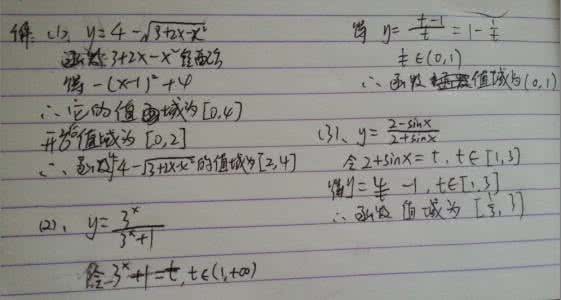 解: (1)、y=4-√(3+2x-x²)
函数 3+2x-x² 经配方
得 -(x-1)²+4
∴它的值域为[0,4]
开方值域为[0,2]
∴函数y=4-√(3+2x-x²)的值域为[2,4]
(2)、y=3^x/(3^x+1)
令3^x+1=t, t∈(1,+∞)
得 y=(t-1)/t=1-1/t
1/t∈(0,1)
∴函数值域为(0,1)
(3)、y=(2-sinx)/(2+sinx)
令2+sinx=t, t∈[1,3]
得y=4/t-1, t∈[1,3]
∴函数值域为[1/3,3]